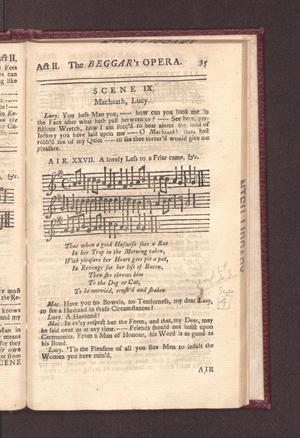 Act II. The BEGGAR's OPERA. 35
SCENE IX.
Macheath, Lucy.
Lucy. You base Man, you —— how can you look me in
the Face after what hath past between us? —— See here, per-
fidious Wretch, how I am forc'd to bear about the load of
Infamy you have laid upon me —— O Macheath! thou hast
robb'd me of my Quiet —— to see thee tortur'd would give me
pleasure.
AIR XXVII. A lovely Lass to a Friar came, &c.
Thus when a good Huswife sees a Rat
In her Trap in the Morning taken,
With pleasure her Heart goes pit a pat,
In Revenge for her loss of Bacon.
Then she throws him
To the Dog or Cat,
To be worried, crush'd and shaken.
Mac. Have you no Bowels, no Tenderness, my dear Lucy,
to see a Husband in these Circumstances?
Lucy. A Husband!
Mac. In ev'ry respect but the Form, and that, my Dear, may
be said over us at any time. —— Friends should not insist upon
Ceremonies. From a Man of Honour, his Word is as good as
his Bond.
Lucy. 'Tis the Pleasure of all you fine Men to insult the
Women you have ruin'd.
AIR